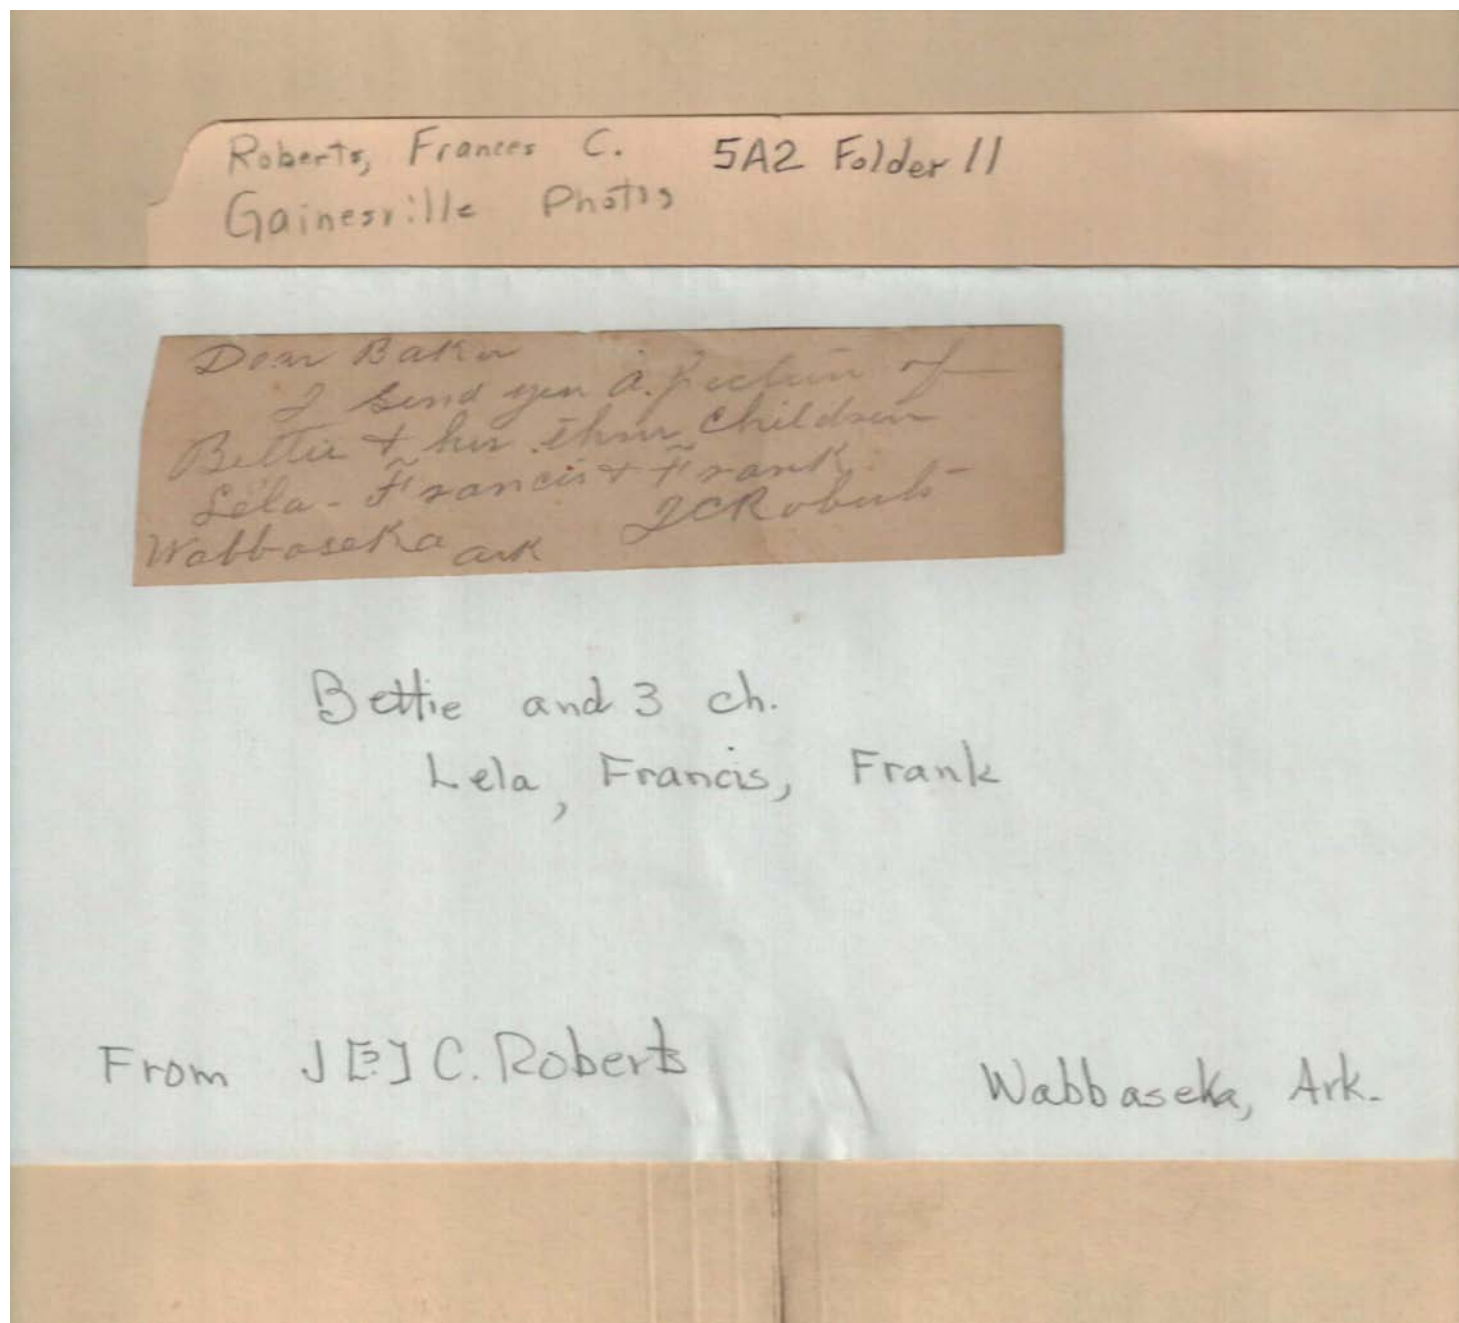 Roberts, Frances C. 5A2 Folder 11
Gainesville Photos
Dear Baker
I send you a picture of
Bettie & her three children
Lela - Francis & Frank.
JCRoberts
Wabbaseka ark
Bettie and 3 ch.
Lela, Francis, Frank
From J [?] C. Roberts
Wabbaseka, Ark.